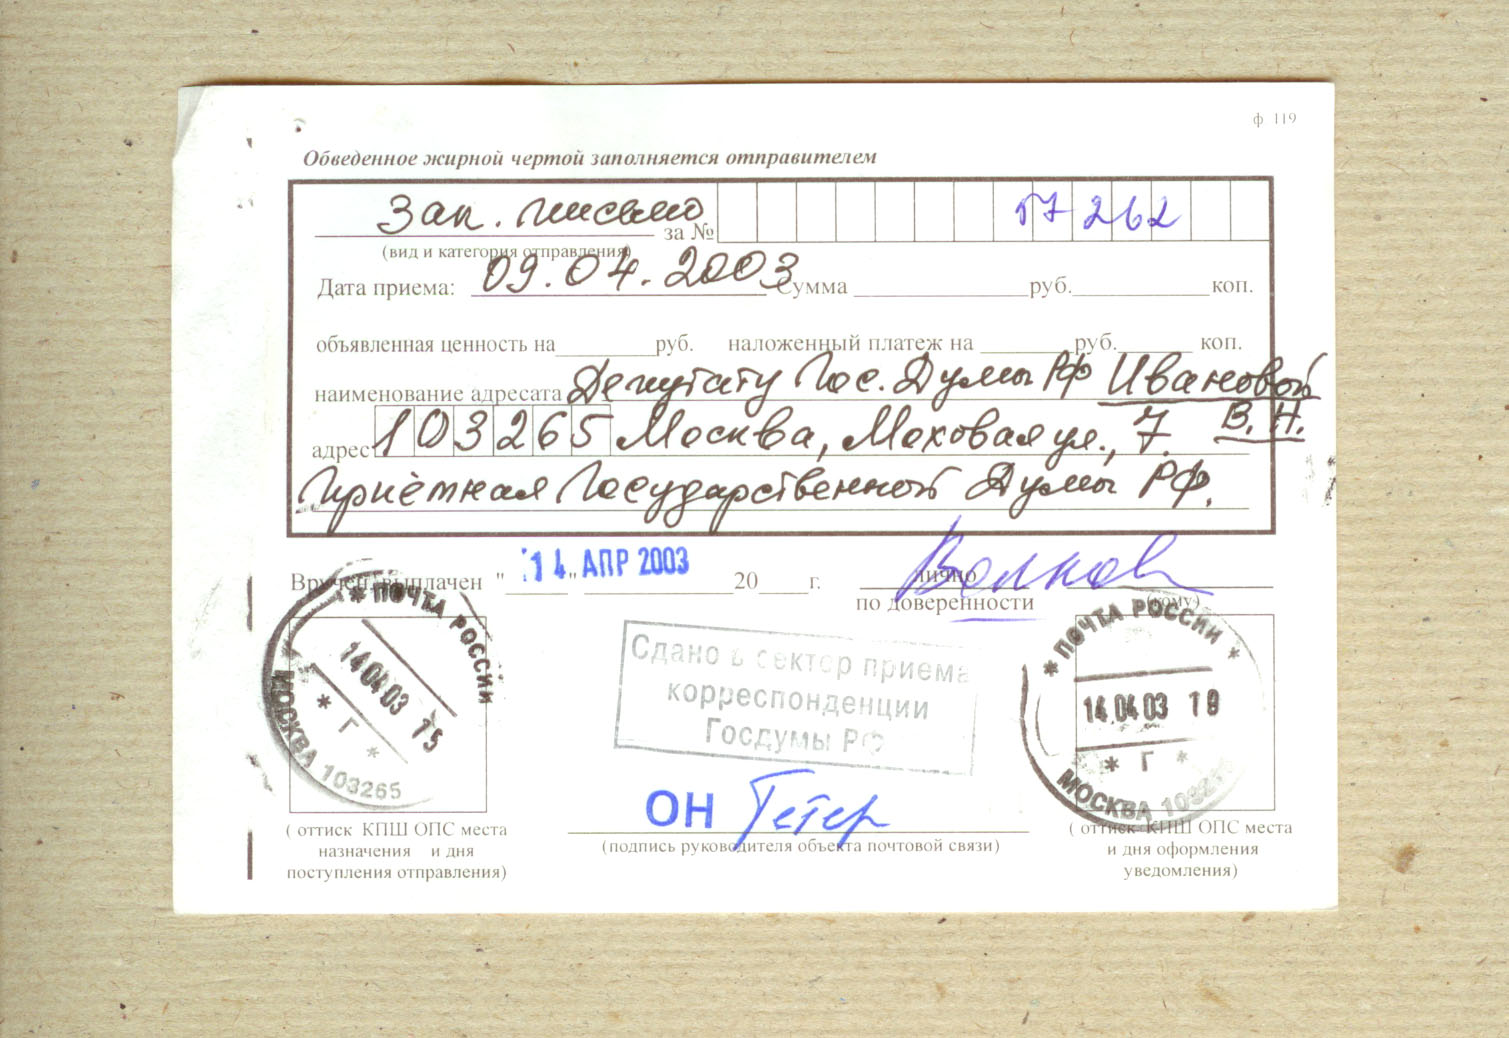 ф 119
Обведенное жирной чертой заполняется отправителем
Зак. письмо за № 57262
(вид и категория отправления)
Дата приема: 09.04.2003 Сумма руб. коп.
объявленная ценность на руб. наложенный платеж на руб. коп.
наименование адресата Депутату Гос. Думы РФ Ивановой
В.Н.
адрес: 103265 Москва, Моховая ул., 7.
Приёмная Государственной Думы РФ.
Вручен, выплачен "14" АПР 2003 20 г. лично Волков
по доверенности (кому)
ПОЧТА РОССИИ
14 04 03 15
* Г *
МОСКВА 103265
Сдано в сектор приема
корреспонденции
Госдумы РФ
ПОЧТА РОССИИ
14 04 03 19
* Г *
МОСКВА
ОН
(подпись руководителя объекта почтовой связи)
(оттиск КПШ ОПС места
назначения и дня
поступления отправления)
(оттиск КПШ ОПС места
и дня оформления
уведомления)